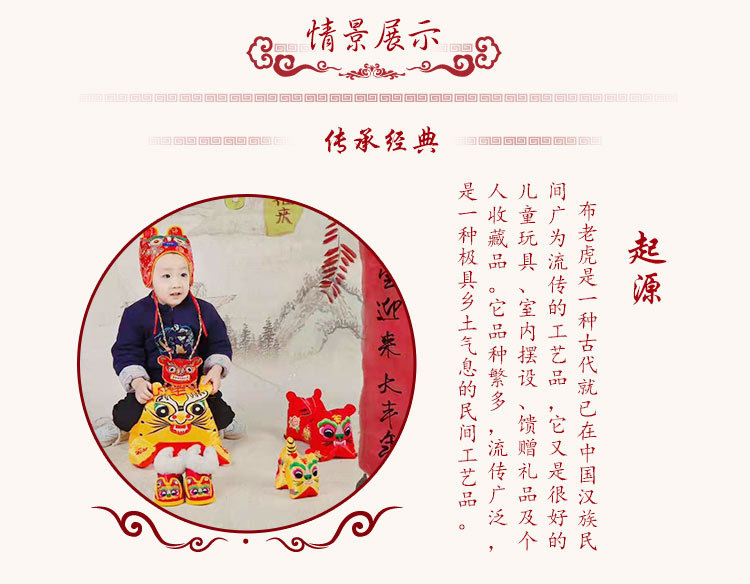 情景展示
传承经典
起源
布老虎是一种古代就已在中国汉族民
间广为流传的工艺品,它又是很好的
儿童玩具、室内摆设、馈赠礼品及个
人收藏品。它品种繁多,流传广泛,
是一种极具乡土气息的民间工艺品。
迎来大丰年